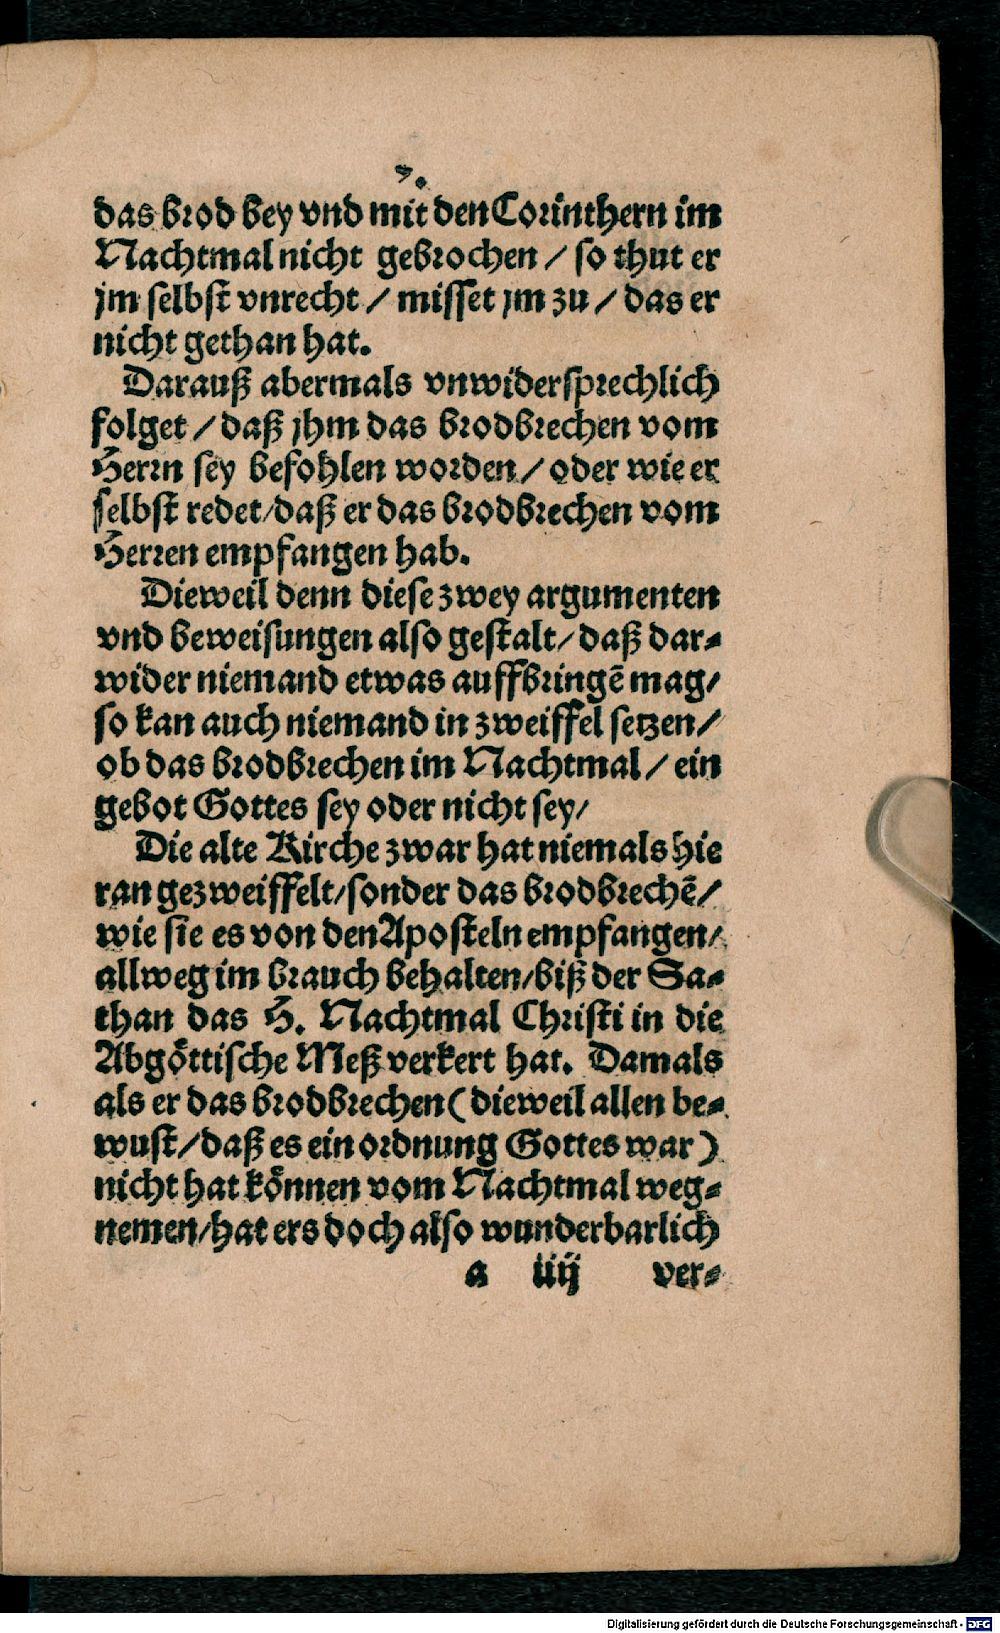 7.
das brod bey vnd mit den Corinthern im
Nachtmal nicht gebrochen / so thut er
jm selbst vnrecht / misset jm zu / das er
nicht gethan hat.
Darauß abermals vnwidersprechlich
folget / daß jhm das brodbrechen vom
Herrn sey befohlen worden / oder wie er
selbst redet / daß er das brodbrechen vom
Herren empfangen hab.
Dieweil denn diese zwey argumenten
vnd beweisungen also gestalt / daß dar-
wider niemand etwas auffbringẽ mag /
so kan auch niemand in zweiffel setzen /
ob das brodbrechen im Nachtmal / ein
gebot Gottes sey oder nicht sey /
Die alte Kirche zwar hat niemals hie
ran gezweiffelt / sonder das brodbrechẽ /
wie sie es von den Aposteln empfangen /
allweg im brauch behalten / biß der Sa-
than das H. Nachtmal Christi in die
Abgöttische Meß verkert hat. Damals
als er das brodbrechen ( dieweil allen be-
wust / daß es ein ordnung Gottes war )
nicht hat können vom Nachtmal weg-
nemen / hat ers doch also wunderbarlich
a iiij ver-
Digitalisierung gefördert durch die Deutsche Forschungsgemeinschaft - DFG